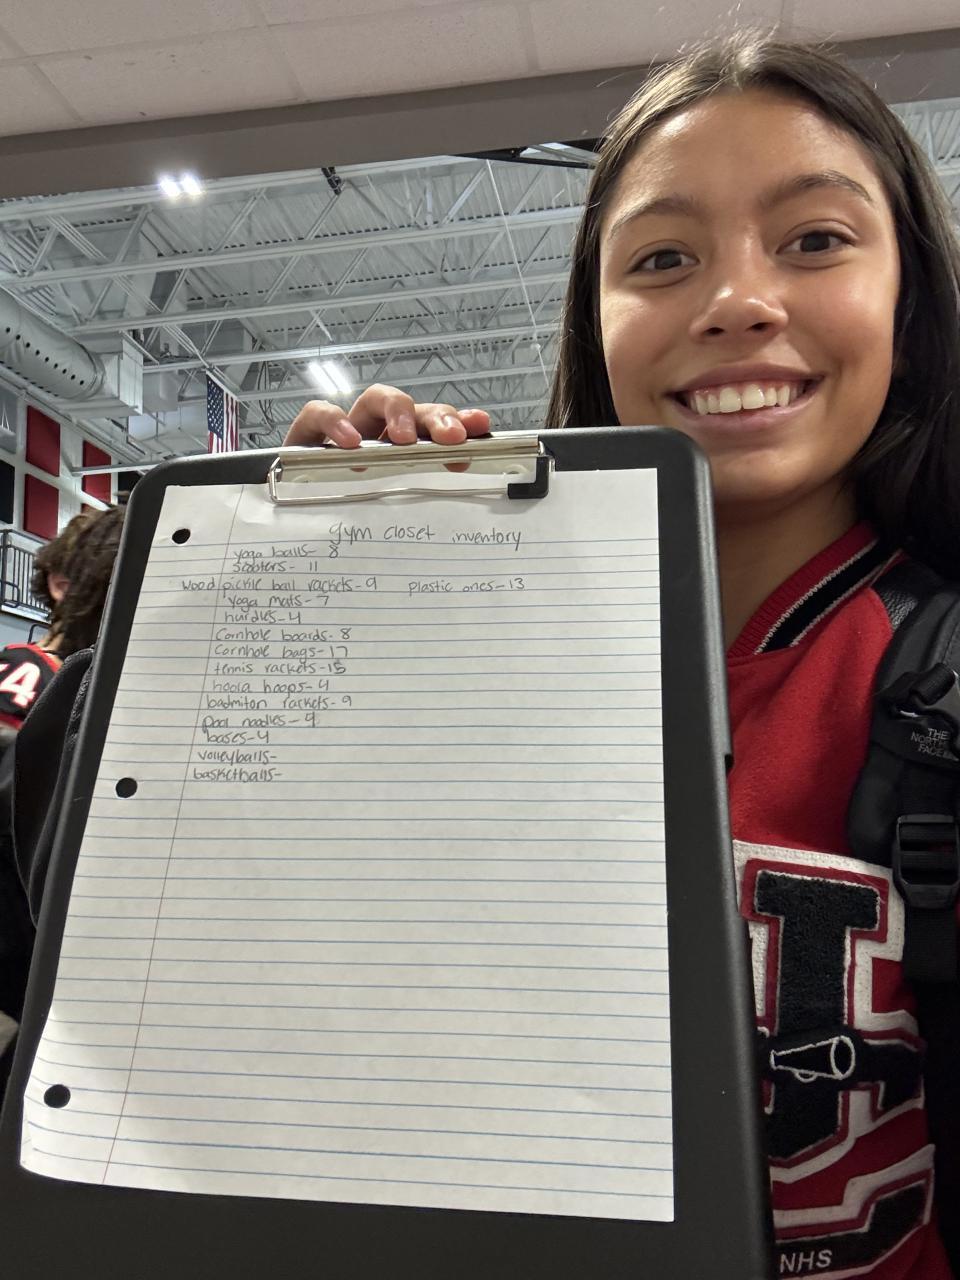 gym closet inventory
yoga balls- 8
scooters- 11
wood pickle ball rackets-9 plastic ones-13
yoga mats-7
hurdles-4
Cornhole boards-8
Cornhole bags-17
tennis rackets-15
hoola hoops-4
badmiton rackets-9
pool noodles-9
bases-4
volleyballs-
basketballs-
4
THE
NORTH
FACE
NHS